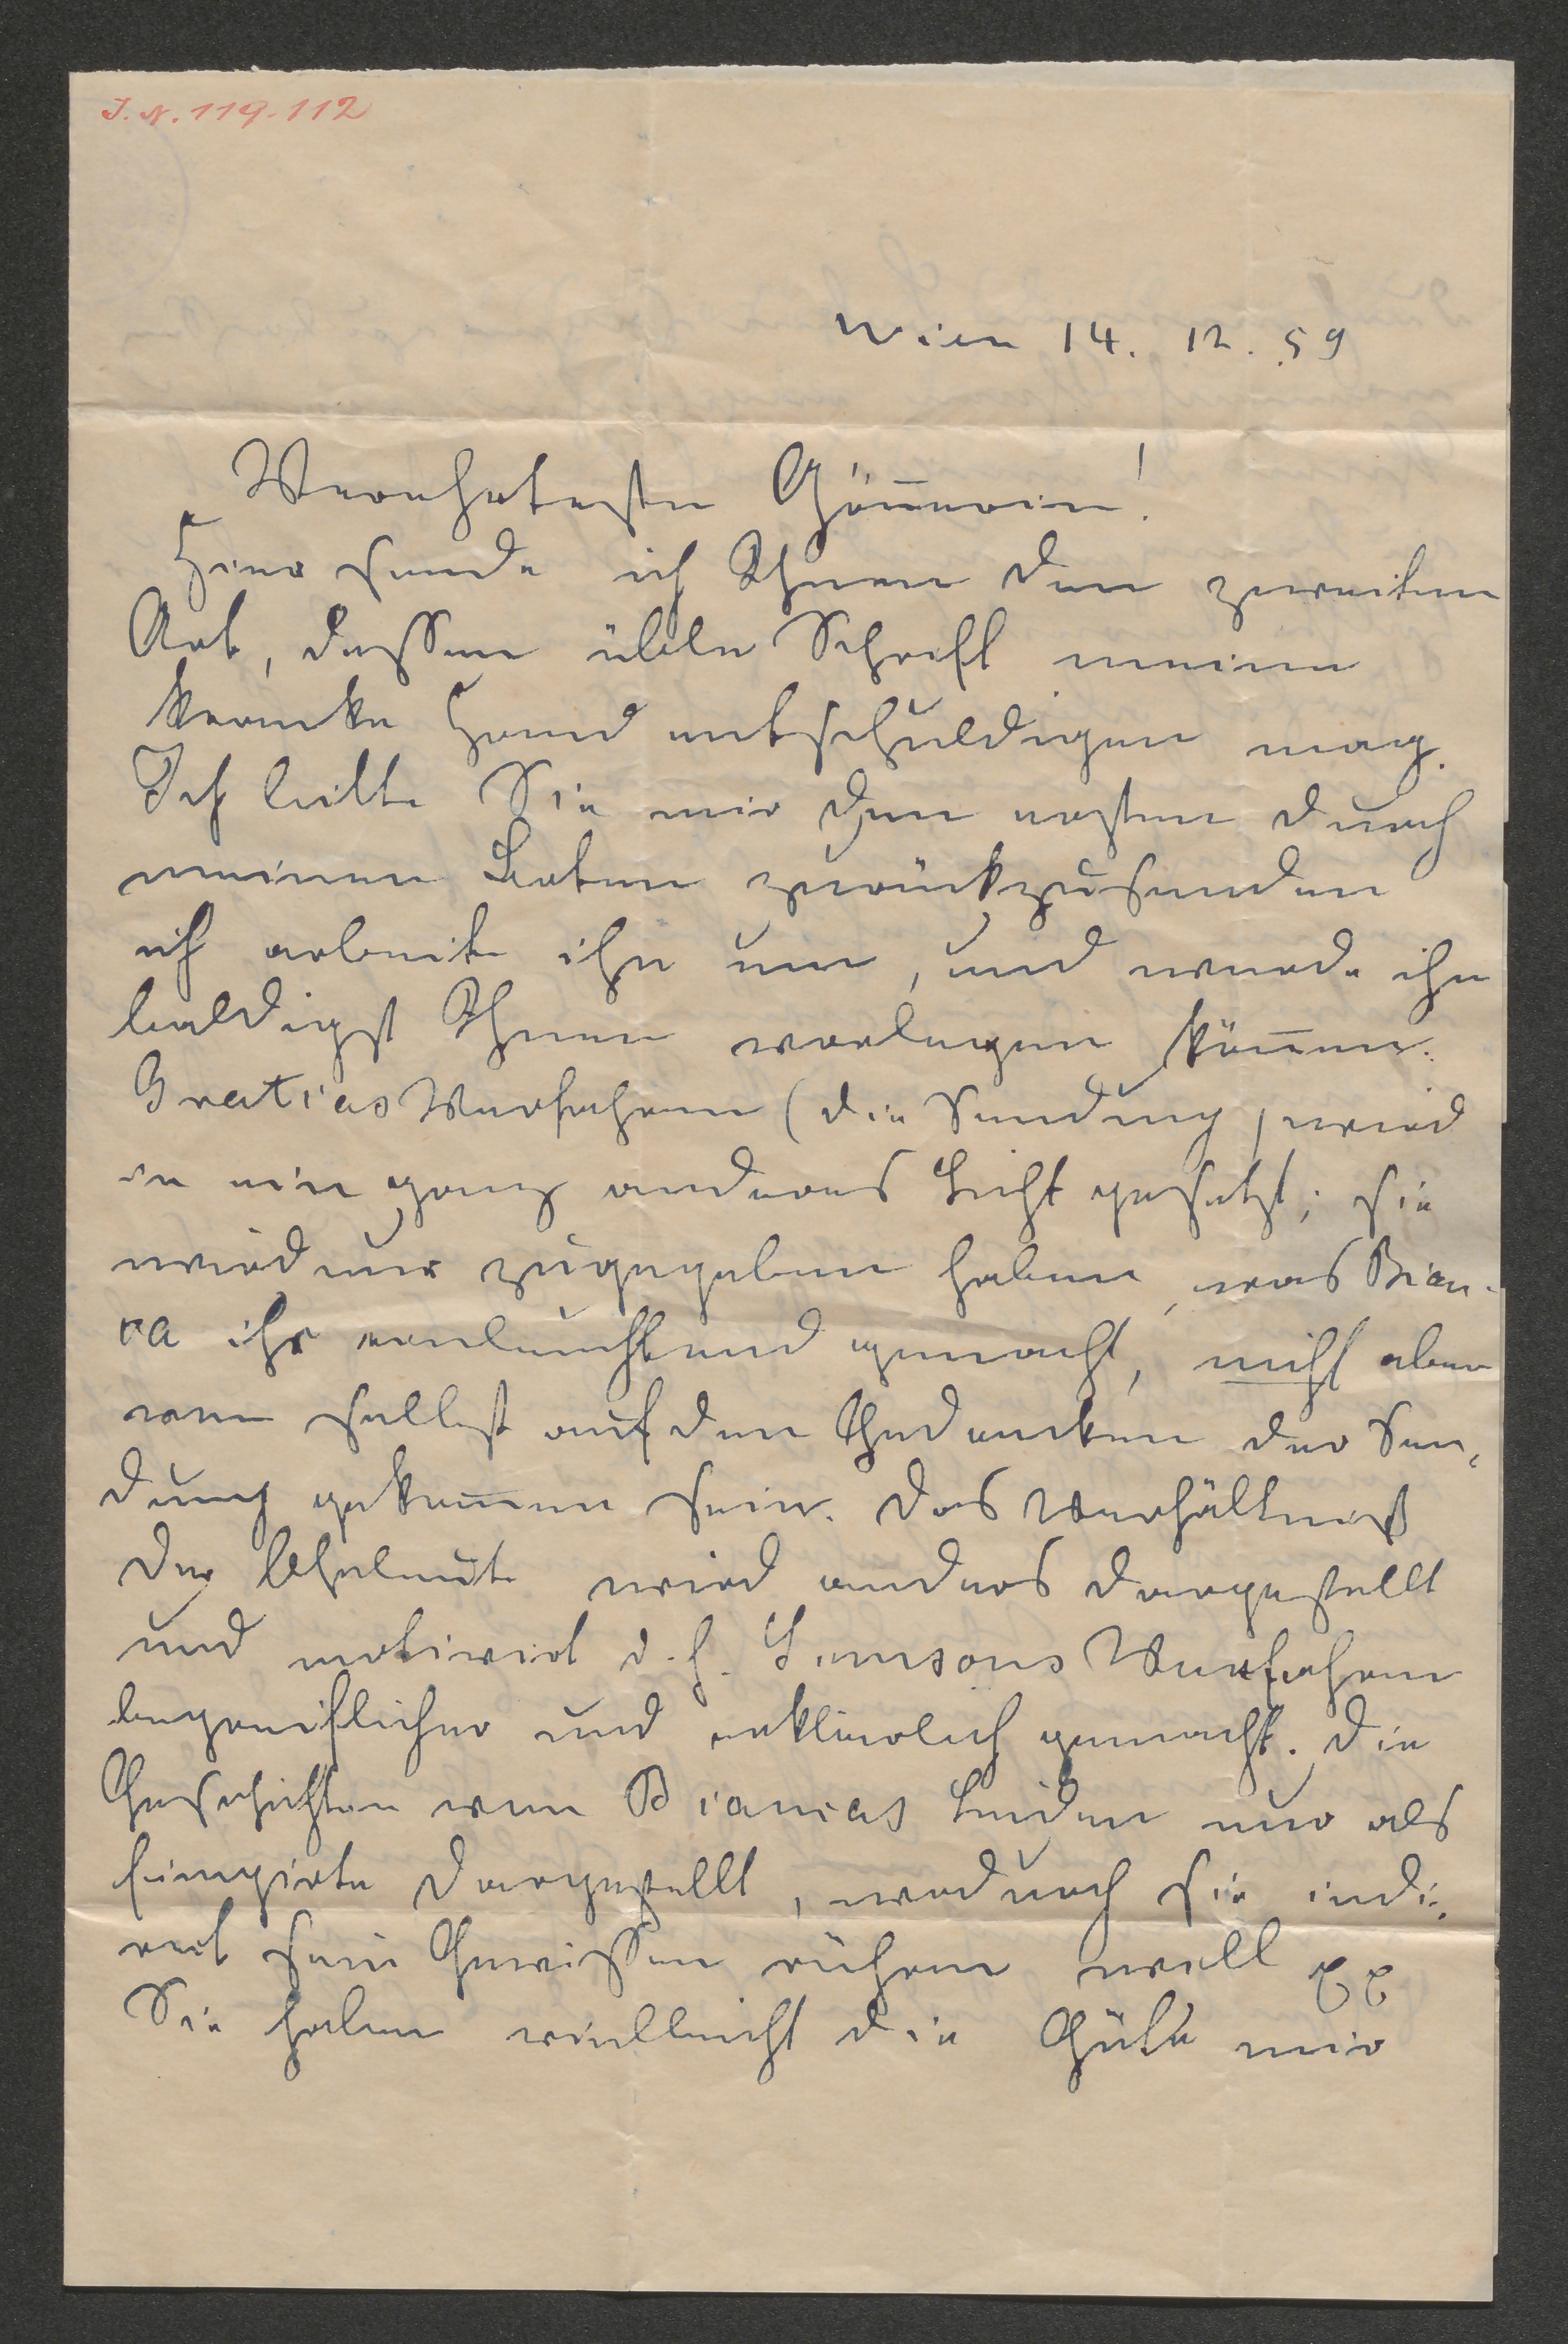 J. N. 119.112
Wien 14. 12. 59
Verehrteste Gönnerin!
Hier sende ich Ihnen den zweiten
Act, dessen üble Schrift meine
kranke Hand entschuldigen mag.
Ich bitte Sie mir den ersten durch
meinen Boten zurückzusenden
ich arbeite ihn um, und werde ihn
baldigst Ihnen vorlegen können.
Gratias Verfahren (die Sendung) wird
in ein ganz anderes Licht gesetzt; sie
wird nur zugegeben haben, was Bian-
ca ihr einleuchtend gemacht, nicht aber
von selbst auf den Gedanken der Sen-
dung gekommen sein. Das Verhältniß
der Eheleute wird anders dargestellt
und motivirt d. h. Simsons Verfahren
begreiflicher und erklärlich gemacht. Die
Geschichten von Biancas Leiden nur als
fingirte dargestellt, wodurch sie indi-
rect sein Gewissen rühren will pp
Sie haben vielleicht die Güte mir